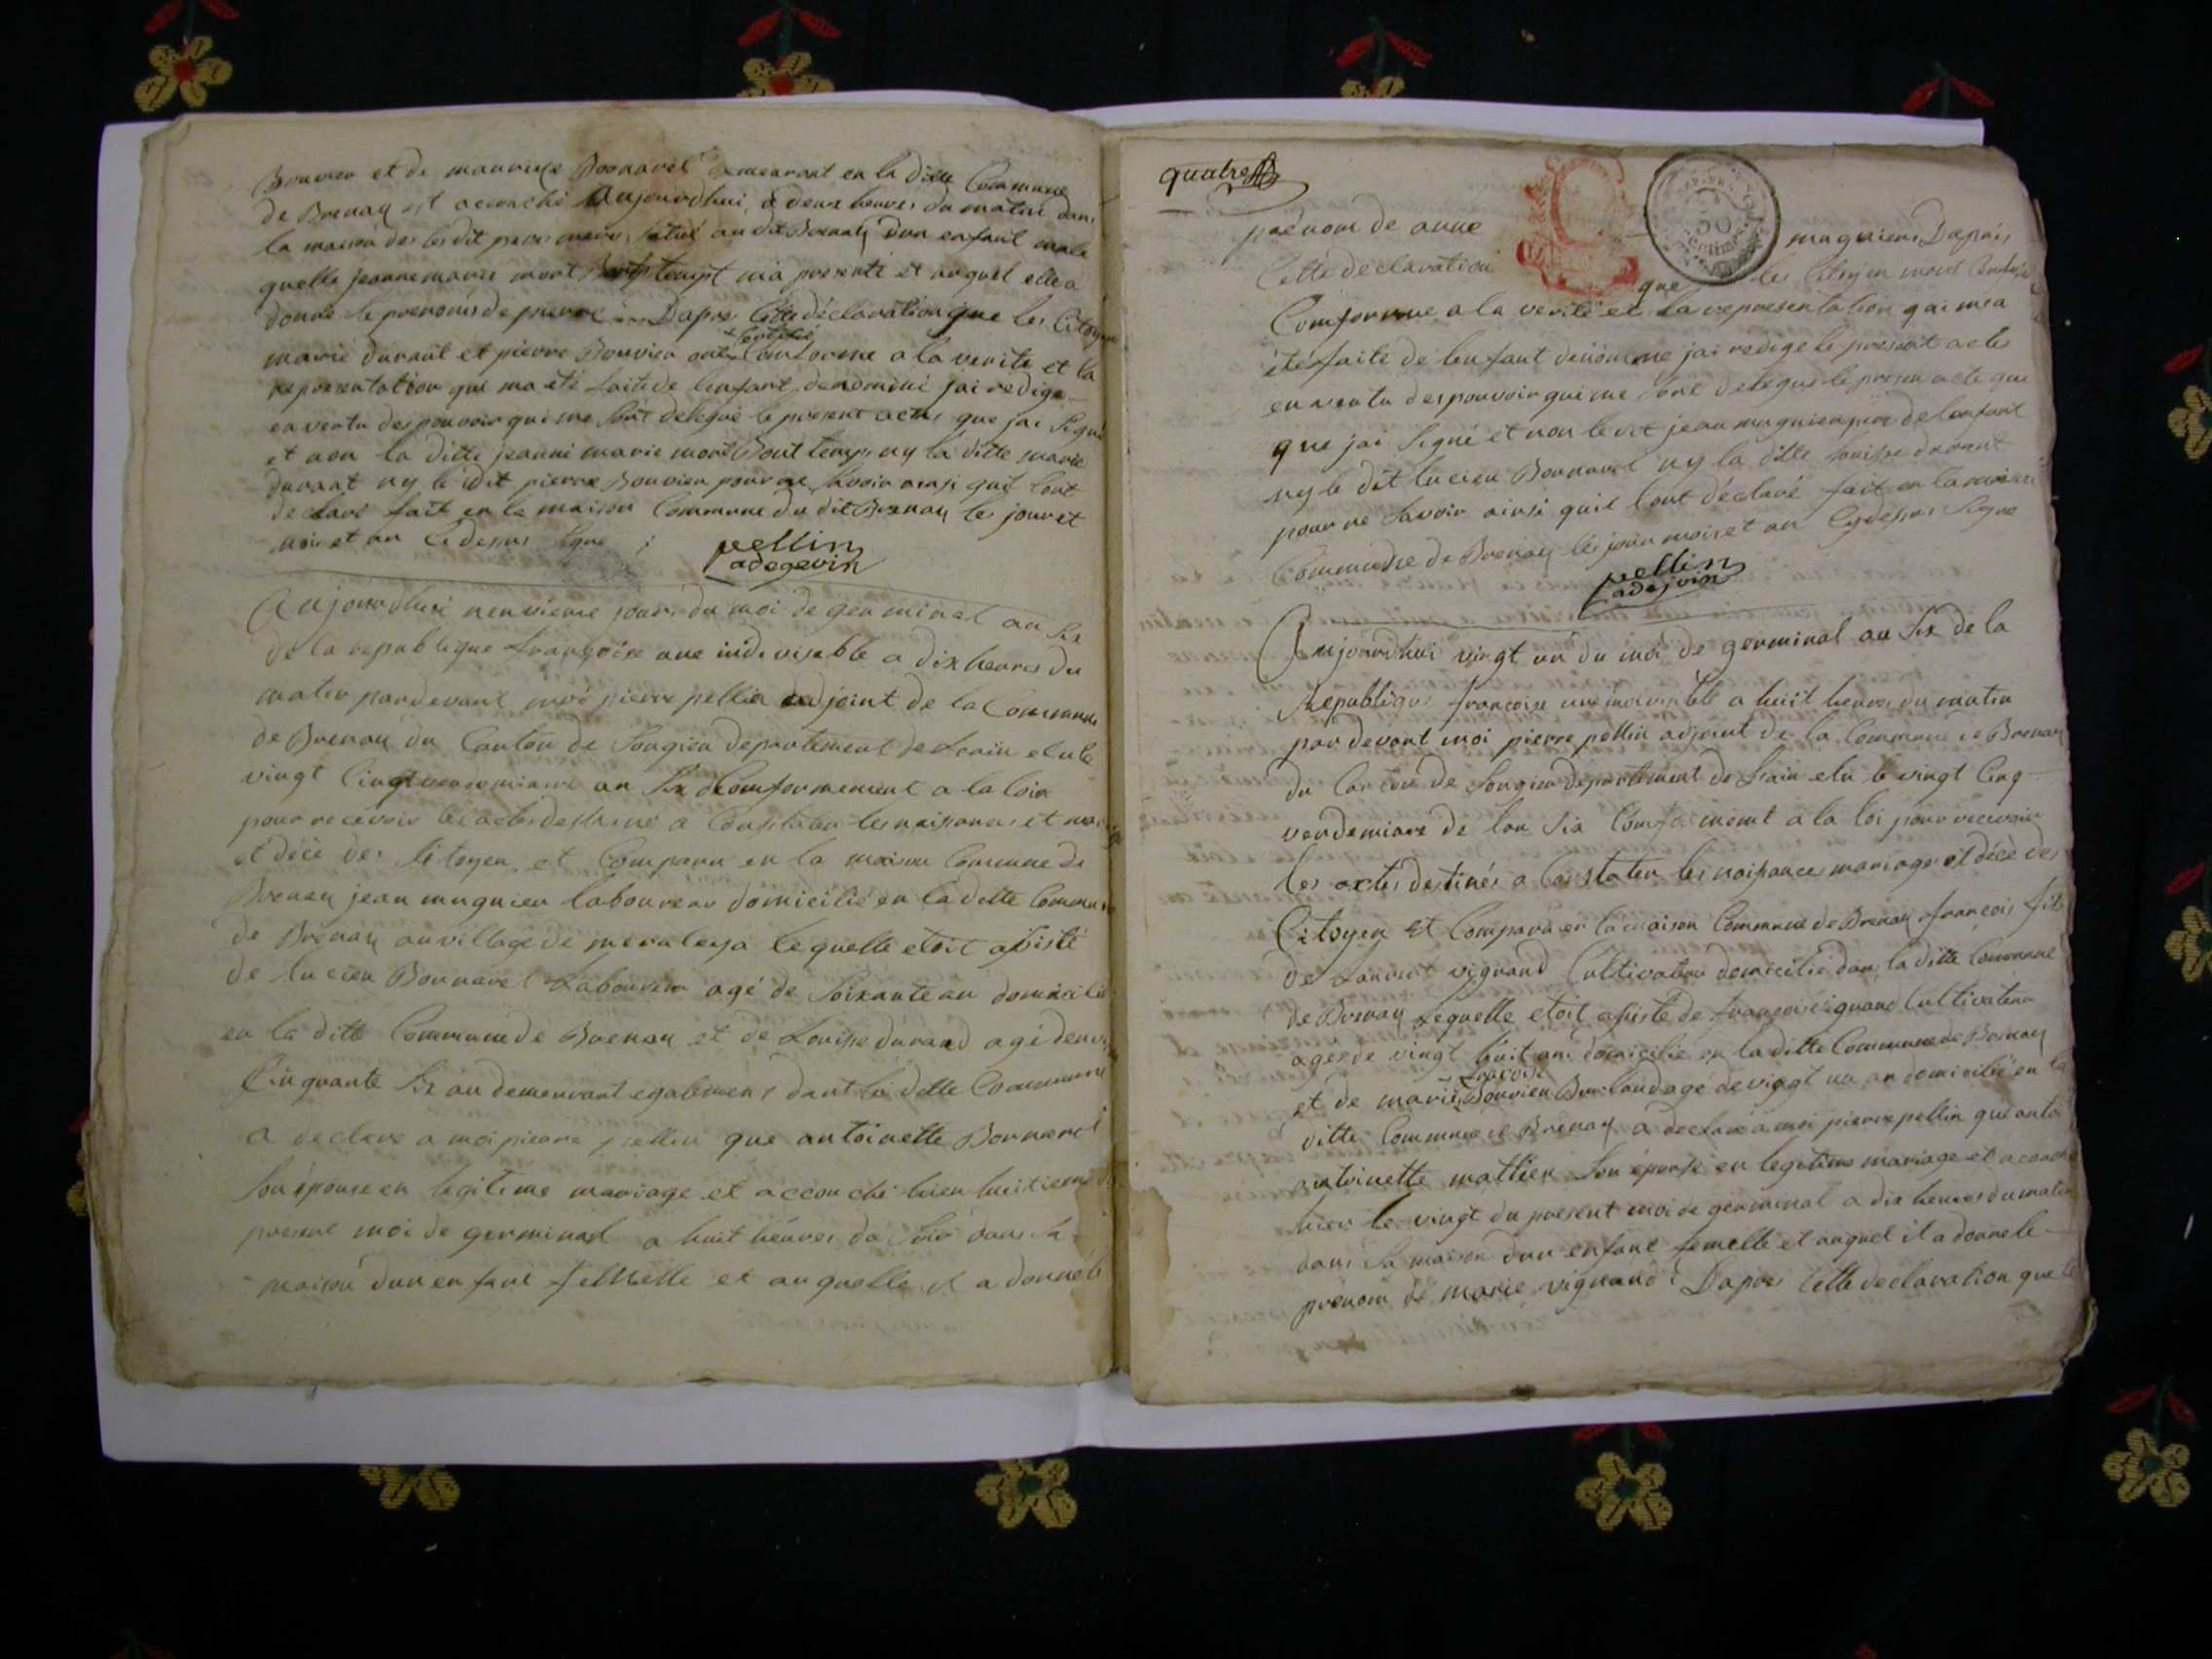 Bouvier et de mauriche Bornarel demeurant en la ditte Commune
de Brenay est accouché Aujourdhui a deux heures du matin dans
la maison des lesdit pere mere situé audit Brenay dun enfant male
quelle jeanne marie mont tempt ma présenté et auquel elle a
donné le prenoms de pierre Dapres Cette déclaration que les Citoyens
certifié
marie durant et pierre Bouvier ont Conforme a la verite et la
representation qui ma été faite de lenfant denommé jai redige
en vertu des pouvoir qui me sont delegué le present acte que jai signé
et non la ditte jeanne marie mont temps ny la ditte marie
durant ny le dit pierre Bouvier pour ne savoir ainsi quil lont
declaré fait en la maison Commune du dit Brenay les jour et
mois et an ci dessus signé
pellin
adegevin
Aujourdhuei neuvieme jours du moi de germinal an six
de la republique françoise une indivisable a dix heures du
matin pardevant moi pierre pellin adjoint de la Commune
de Brenay du Canton de Songieu departement de Lain elu le
vingt Cinq vendemiaire an six Comformement a la loix
pour recevoir les actes destiné a Constater les naissances et mariage
et décè des Citoyen et Comparu en la maison Commune de
Brenay jean mugnier laboureur domicilié en la ditte Commune
de Brenay au village de meraleya lequelle etoit assisté
de lucien Bornarel Laboureur agé de soixante an domicilié
en la ditte Commune de Brenay et de Louise durand agé denviron
Cinquante six an demeurant egalement dant la ditte Commune
a declaré a moi pierre pellin que antoinette Bornarel
son épouse en legitime mariage et accouché hier huitieme du
present moi de germinal a huit heures du soir dans sa
maison dun enfant femelle et auquelle il a donné le
quatre
50
centimes
prénom de anne mugnier Dapres
Cette declaration que les Citoyen mont Certifié
Comforme a la verité et la representation qui ma
été faite de lenfant denommé jai redige le present acte
en vertu des pouvoir qui me sont delegué le presen acte que
que jai signé et non le dit jean mugnier pere de lenfant
ny le dit lucien Bornarel ny la ditte louise durant
pour ne savoir ainsi quil lont déclaré fait en la maison
Commune de Brenay les jour mois et an Cydessus signé
pellin
adejoin
Aujourdhui vingt un du moi de germinal an six de la
Republique françoise une indivisible a huit heures du matin
par devant moi pierre pellin adjoint de la Commune de Brenay
du Canton de Songieu departement de Lain elu le vingt Cinq
vendemiare de lan six Comformement a la loi pour recevoir
les actes destinés a Constater les naissances mariage et décè des
Citoyen Et Comparu en la maison Commune de Brenay françois fils
de Laurent vignand Cultivateur domicilié dans la ditte Commune
de Brenay Lequelle etoit assisté de françois vignand Cultivateur
agé de vingt huit ans domicilié en la ditte Commune de Brenay
et de marie Bouvier agé de vingt un an domicilié en la
ditte Commune de Brenay a declaré a moi pierre pellin que anto
antoinette mathieu son épouse en legitime mariage et a couché
hier le vingt du present moi de germinal a dix heures du matin
dans sa maison dun enfant femelle et auquel il a donné le
prénom de marie vignand Dapres Cette declaration que le